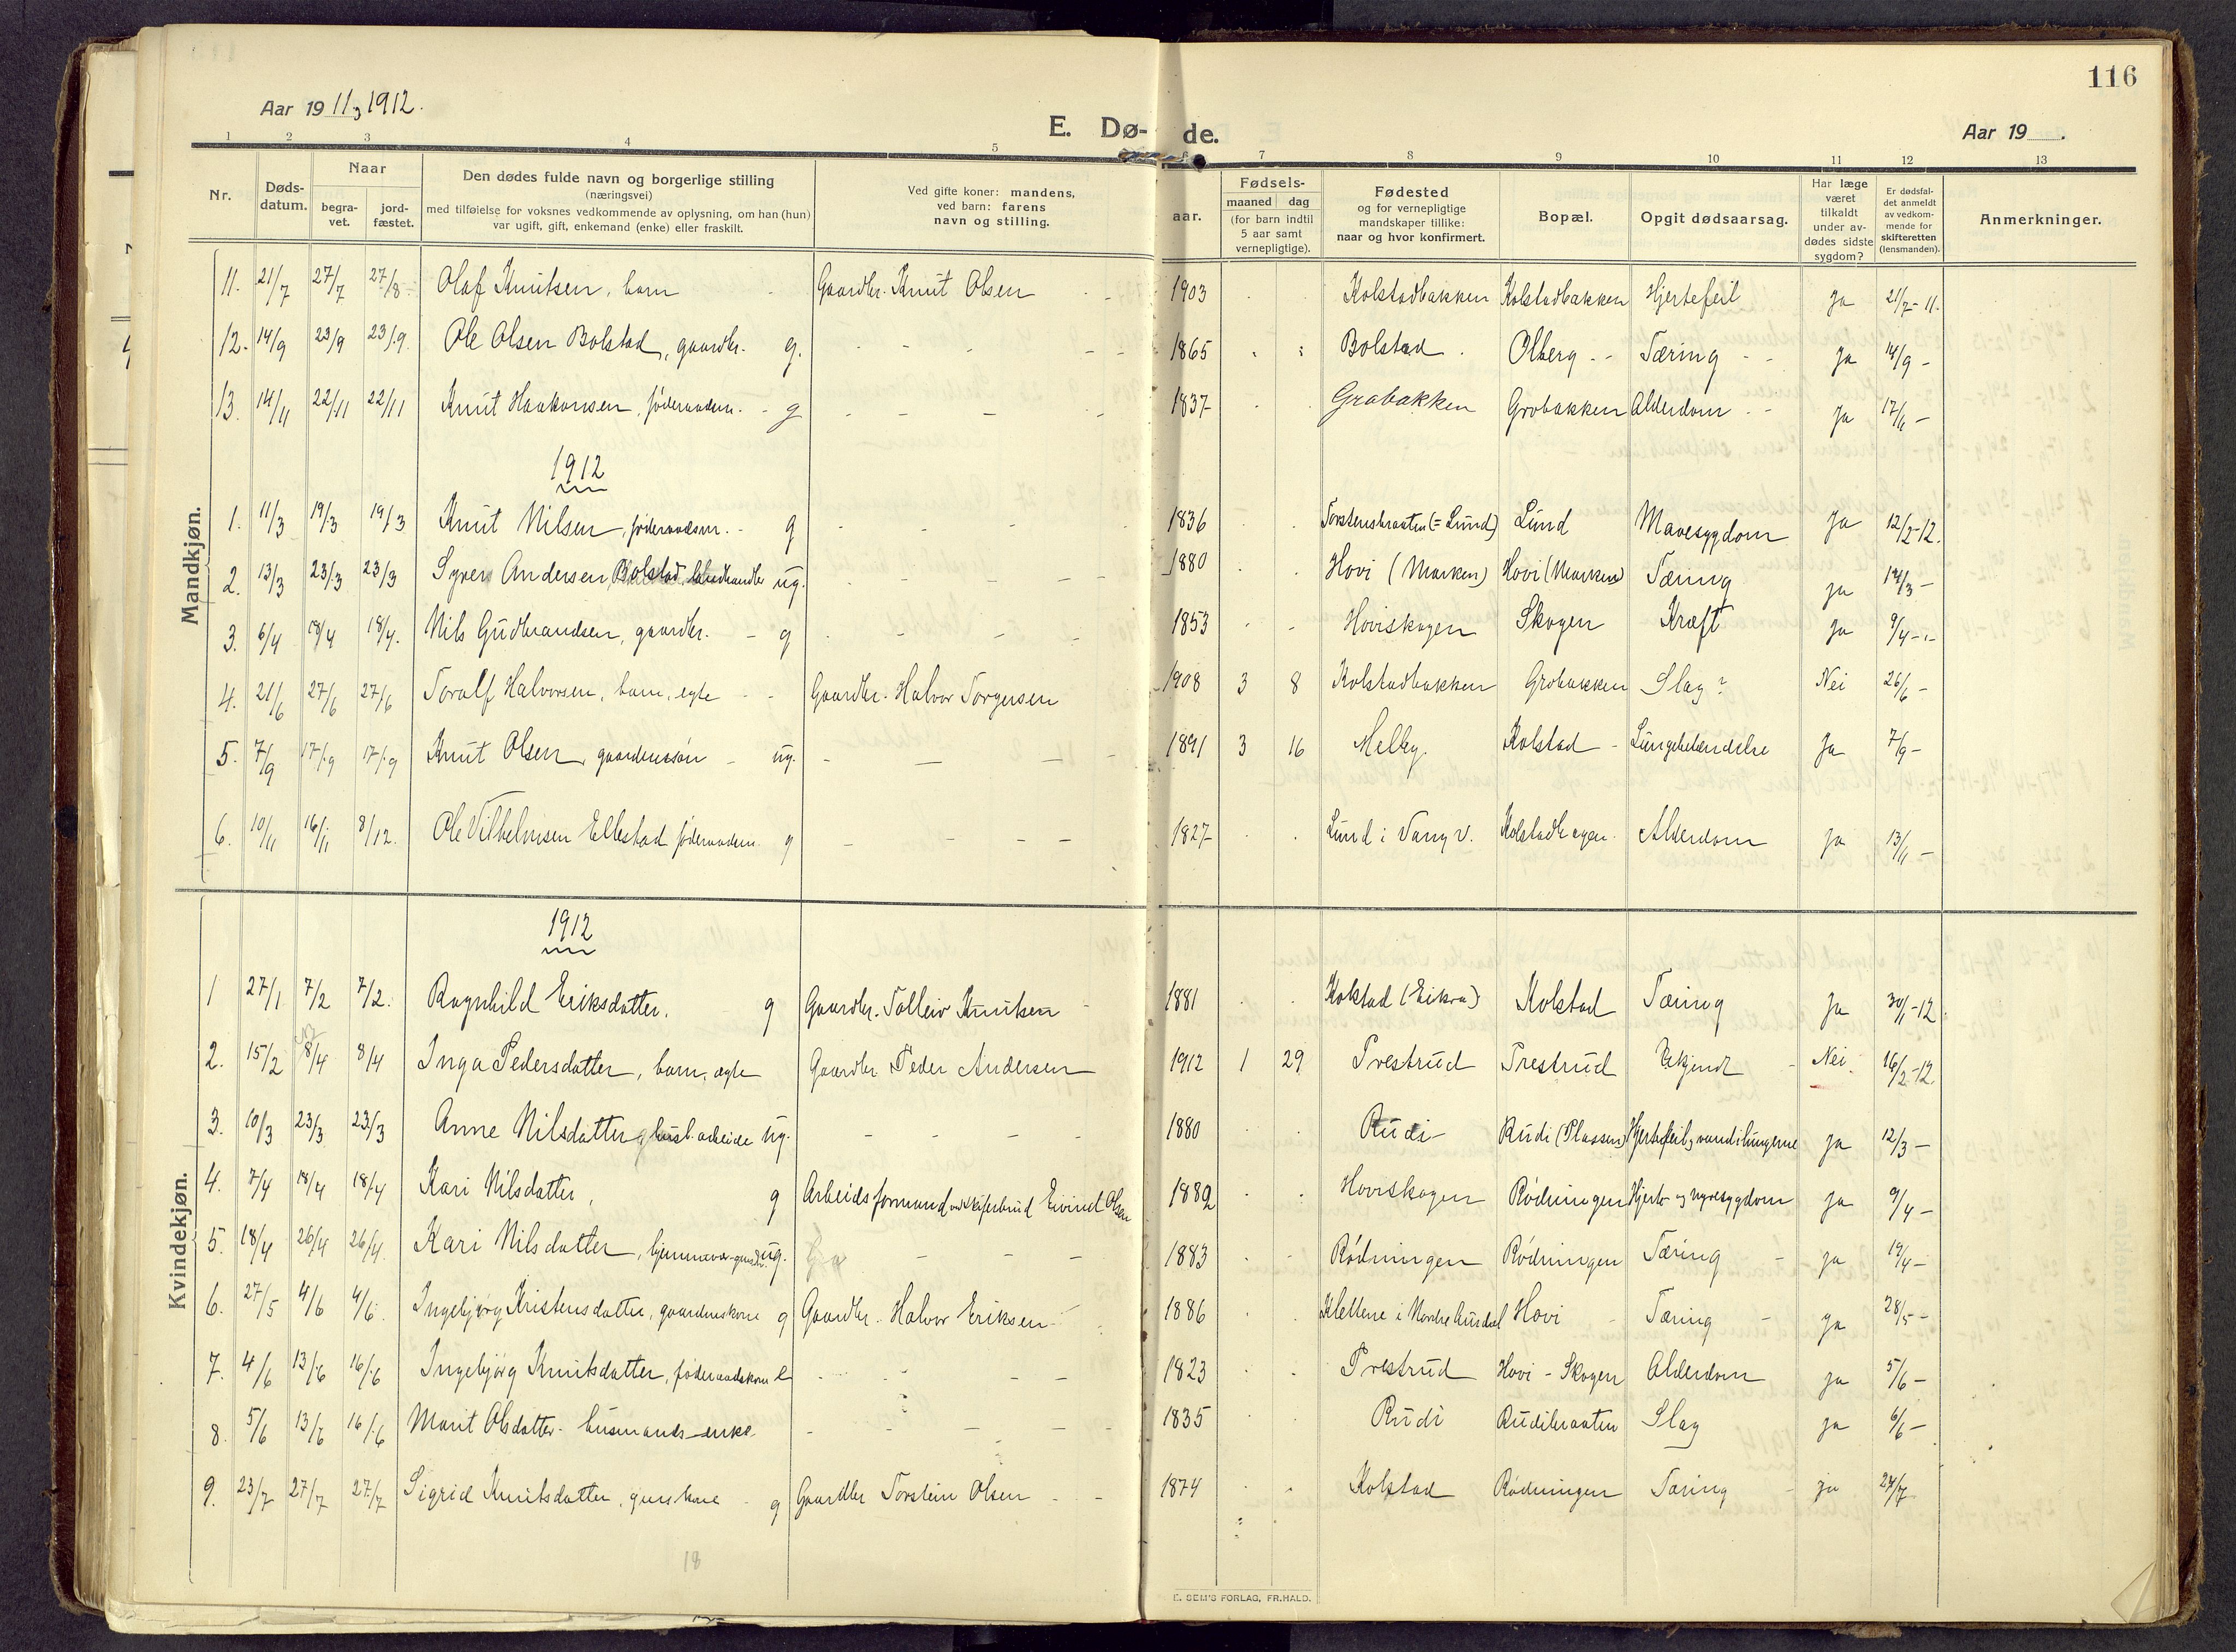 116
Aar 1911, 1912.
E. Dø- de.
Aar 19 .
1 2 3 4 5 7 8 9 10 11 12 13
Nr.
Døds-
datum.
Naar
begra-
vet.
jord-
fæstet.
Den dødes fulde navn og borgerlige stilling
(næringsvei)
med tilføielse for voksnes vedkommende av oplysning, om han (hun)
var ugift, gift, enkemand (enke) eller fraskilt.
Ved gifte koner: mandens,
ved barn: farens
navn og stilling.
aar.
Fødsels-
maaned dag
(for barn indtil
5 aar samt
vernepligtige).
Fødested
og for vernepligtige
mandskaper tillike:
naar og hvor konfirmert.
Bopæl.
Opgit dødsaarsag.
Har læge
været
tilkaldt
under av-
dødes sidste
sygdom?
Er dødsfal-
det anmeldt
av vedkom-
mende for
skifteretten
(lensmanden).
Anmerkninger.
Mandkjøn.
11. 21/7 27/7 27/8 Olaf Knutsen, barn Gaardbr. Knut Olsen 1903 Kolstadbakken Kolstadbakken Hjertefeil Ja 21/7-11.
12. 14/9 23/9 23/9 Ole Olsen Bolstad, gaardbr. g. 1865 Bolstad Olberg Tæring Ja 14/9 -
13. 14/11 22/11 22/11 Knut Haakonsen, föderaadsm. g 1837 Grobakken Grobakken Alderdom Ja 17/11 -
1912
1. 11/3 19/3 19/3 Knut Nilsen, föderaadsm. g 1836 Torstensbraaten (= Lund) Lund Mavesygdom Ja 12/2-12.
2. 13/3 23/3 23/3 Syver Andersen Bolstad, landhandler ug. 1880 Hovi (Marken) Hovi (Marken) Tæring ja 14/3 -
3. 6/4 18/4 18/4. Nils Gudbrandsen, gaardbr. g 1853 Hoviskogen Skogen Kræft Ja 9/4 -
4. 21/6 27/6 27/6 Toralf Halvorsen, barn, egte Gaardbr. Halvor Torgersen 1908 3 8 Kolstadbakken Grobakken Slag? Nei 26/6 -
5. 7/9 17/9 17/9 Knut Olsen, gaardmssön ug. 1891 3 16 Melby. Kolstad Lungebetændelse Ja 7/9 -
6. 10/11 16/11 8/12. Ole Vilhelmsen Ellestad föderaadsm. g 1827 Lund i Vang V. Kolstadhagen Alderdom Ja 13/11 -
Kvindekjøn.
1912
1 27/1 7/2 7/2. Ragnhild Eriksdatter. g Gaardbr. Tolleiv Knutsen 1881 Kolstad (Eikra) Kolstad Tæring Ja 30/1-12
2. 15/2 8/4 8/4 Inga Pedersdatter, barn, ægte Gaardbr. Peder Andersen 1912 1 29 Prestrud Prestrud Ukjendt Nei. 16/2-12.
3. 10/3 23/3 23/3 Anne Nilsdatter, husl. arbeide ug. 1880 Rudi Rudi (Plassen) Hjertefeil, vand i lungerne ja 12/3 -
4. 7/4 18/4 18/4 Kari Nilsdatter, g Arbeidsformand ved skiferbrud Eivind Olsen 1882 Hoviskogen Rödningen Hjerte- og nyresygdom ja 9/4 -
5. 18/4 26/4 26/4 Kari Nilsdatter, ug. 1883 Rödningen Rödningen Tæring ja 19/4 -
6. 27/5 4/6 4/6. Ingebjörg Kristensdatter, gaardmskone g Gaardbr. Halvor Eriksen 1886 Klettene i Nordre Aurdal Hovi Tæring ja 28/5 -
7. 4/6 13/6 16/6 Ingebjörg Knutsdatter, föderaadskone e 1823 Prestrud Hovi - Skogen Alderdom ja 5/6 -
8. 5/6 13/6 16/6 Marit Olsdatter - husmands-enke 1835 Rudi Rudibraaten Slag ja 6/6 -
9. 23/7 27/7 27/7 Sigrid Knutsdatter, gmskone g Gaardbr. Torstein Olsen 1874 Kolstad Rödningen Tæring ja 24/7
18
E. SEM'S FORLAG, FR.HALD.